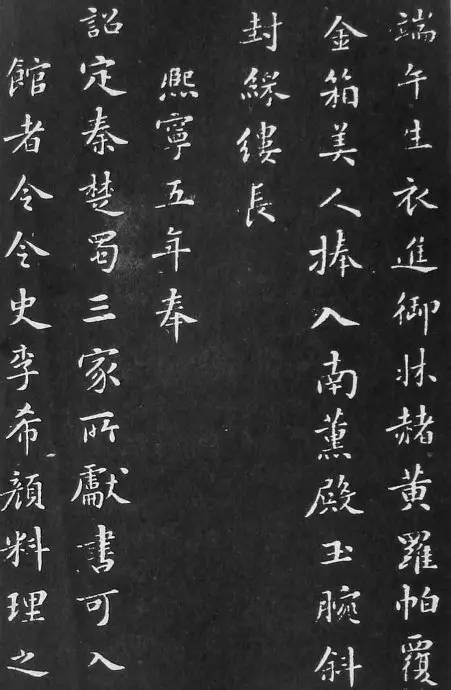 端午生衣進御牀赭黃羅帕覆
金箱美人捧入南薰殿玉腕斜
封綵縷長
熙寧五年奉
詔定秦楚蜀三家所獻書可入
館者令令史李希顔料理之